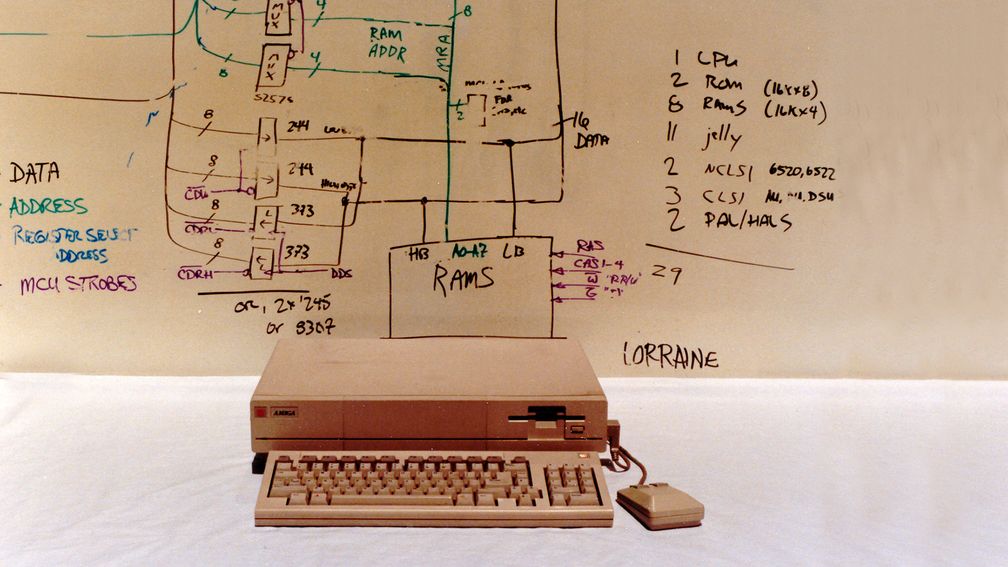 MUX
8
4
8
RAM
ADDR
MRA
MUX
8
4
S257s
2
FOR
8
244
16
DATA
8
244
CDW
8
373
CDRL
8
373
CDRH
DDS
OR, 2x '245
OR 8307
DATA
ADDRESS
REGISTER SELECT
ADDRESS
MCU STROBES
HB A0-A7 LB
RAMS
RAS
CAS1-4
W "RA/W"
G
1 CPU
2 ROM (16Kx8)
8 RAMS (16Kx4)
11 jelly
2 NCLSI 6520,6522
3 CLSI DSU
2 PAL/HALS
29
LORRAINE
AMIGA